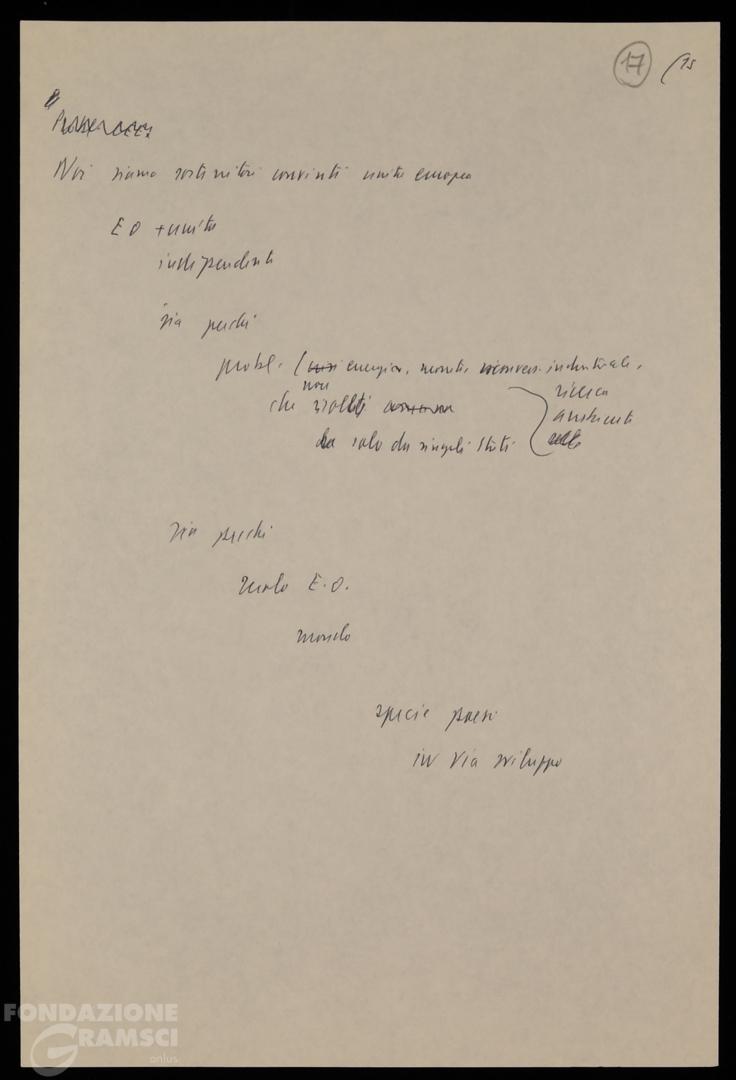 17 (15
Noi siamo sostenitori convinti unità europea
E O + unita
indipendente
sia perché
probl. ( energia, moneta, riconvers. industriale,
non ricerca
che risolti ambiente
solo da singoli Stati
sia perché
ruolo E.O.
mondo
specie paesi
in via sviluppo
FONDAZIONE
GRAMSCI
onlus